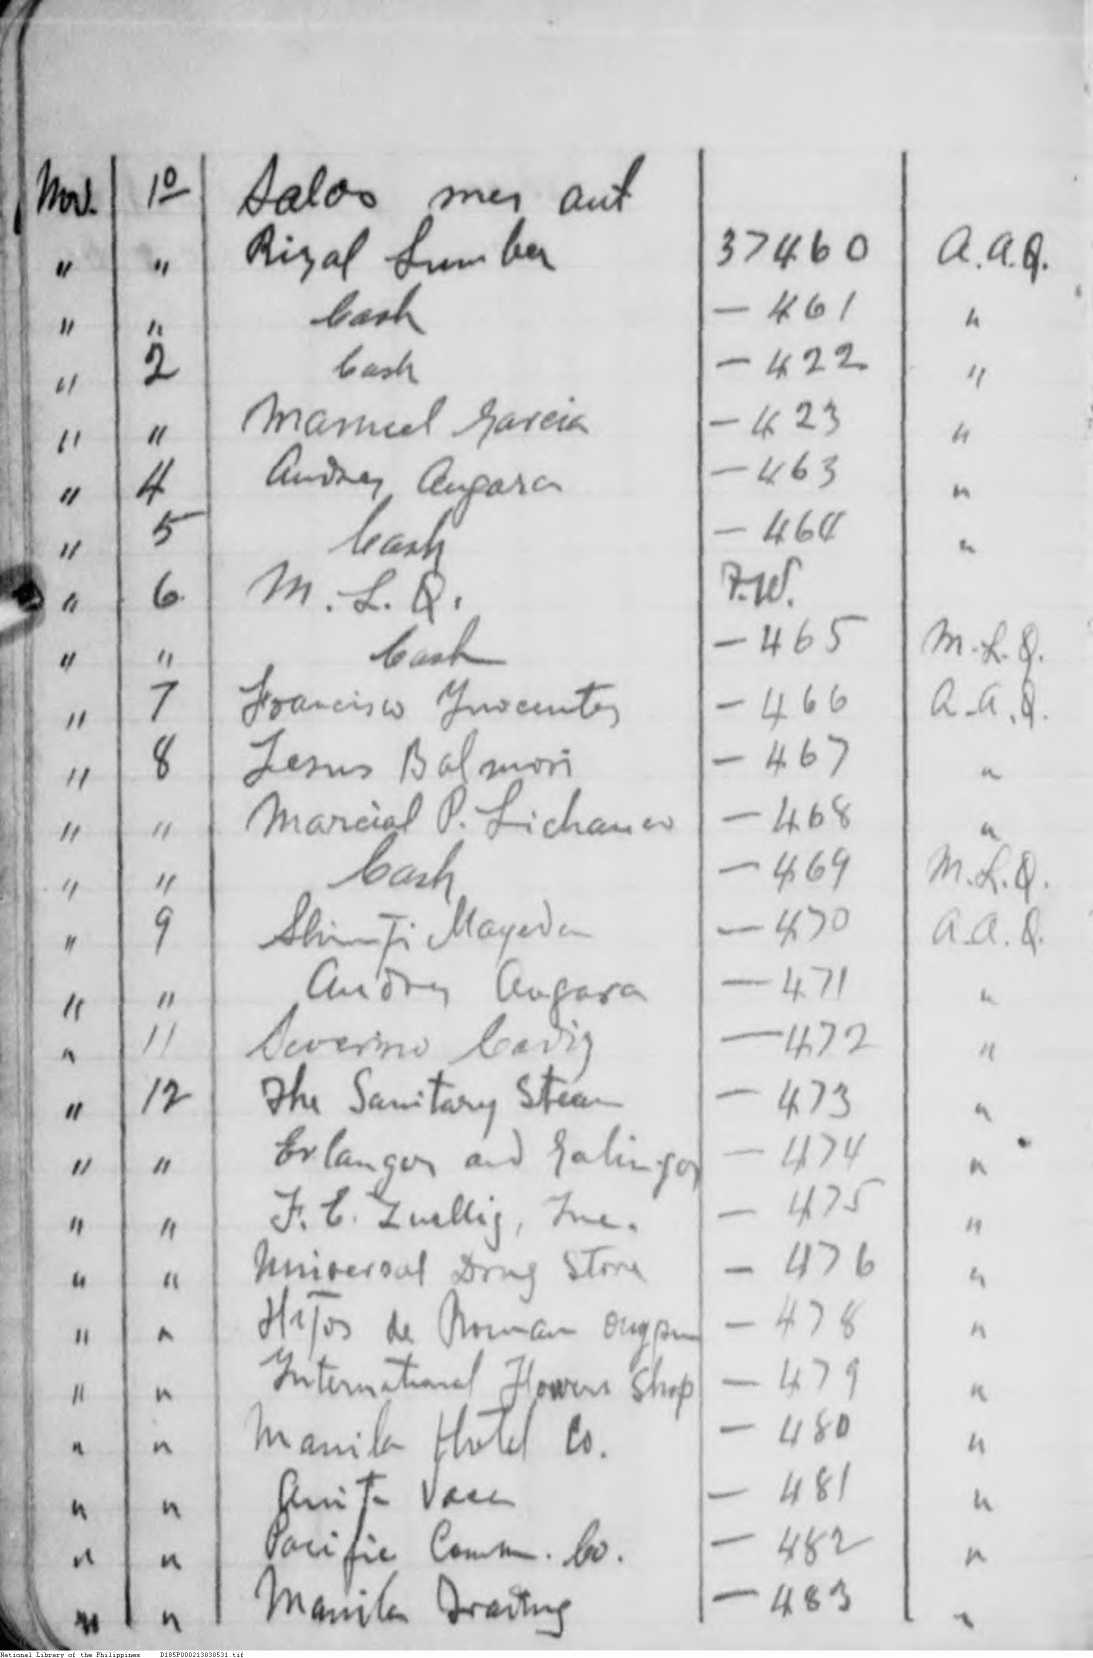 Nov. 10 Saldo mes ant
" " Rizal Lumber 37460 A.A.Q.
" " Cash — 461 "
" 2 Cash — 422 "
" " Manuel Garcia — 423 "
" 4 Andres Angara — 463 "
" 5 Cash — 464 "
" 6 M.L.Q. F.W.
" " Cash — 465 M.L.Q.
" 7 Francisco Inocentes — 466 A.A.Q.
" 8 Jesus Balmori — 467 "
" " Marcial P. Lichauco — 468 "
" " Cash — 469 M.L.Q.
" 9 Shinji Mayeda — 470 A.A.Q.
" " Andres Angara — 471 "
" 11 Severino — 472 "
" 12 The Sanitary Steam — 473 "
" " Erlanger and Galinger — 474 "
" " F.E. Zuellig, Inc. — 475 "
" " Universal Drug Store — 476 "
" " Hijos de Roman — 478 "
" " International Flowers Shop — 479 "
" " Manila Hotel Co. — 480 "
" " Anita — 481 "
" " Pacific Comm. Co. — 482 "
" " Manila Trading — 483 "
National Library of the Philippines D185P000213838531.tif